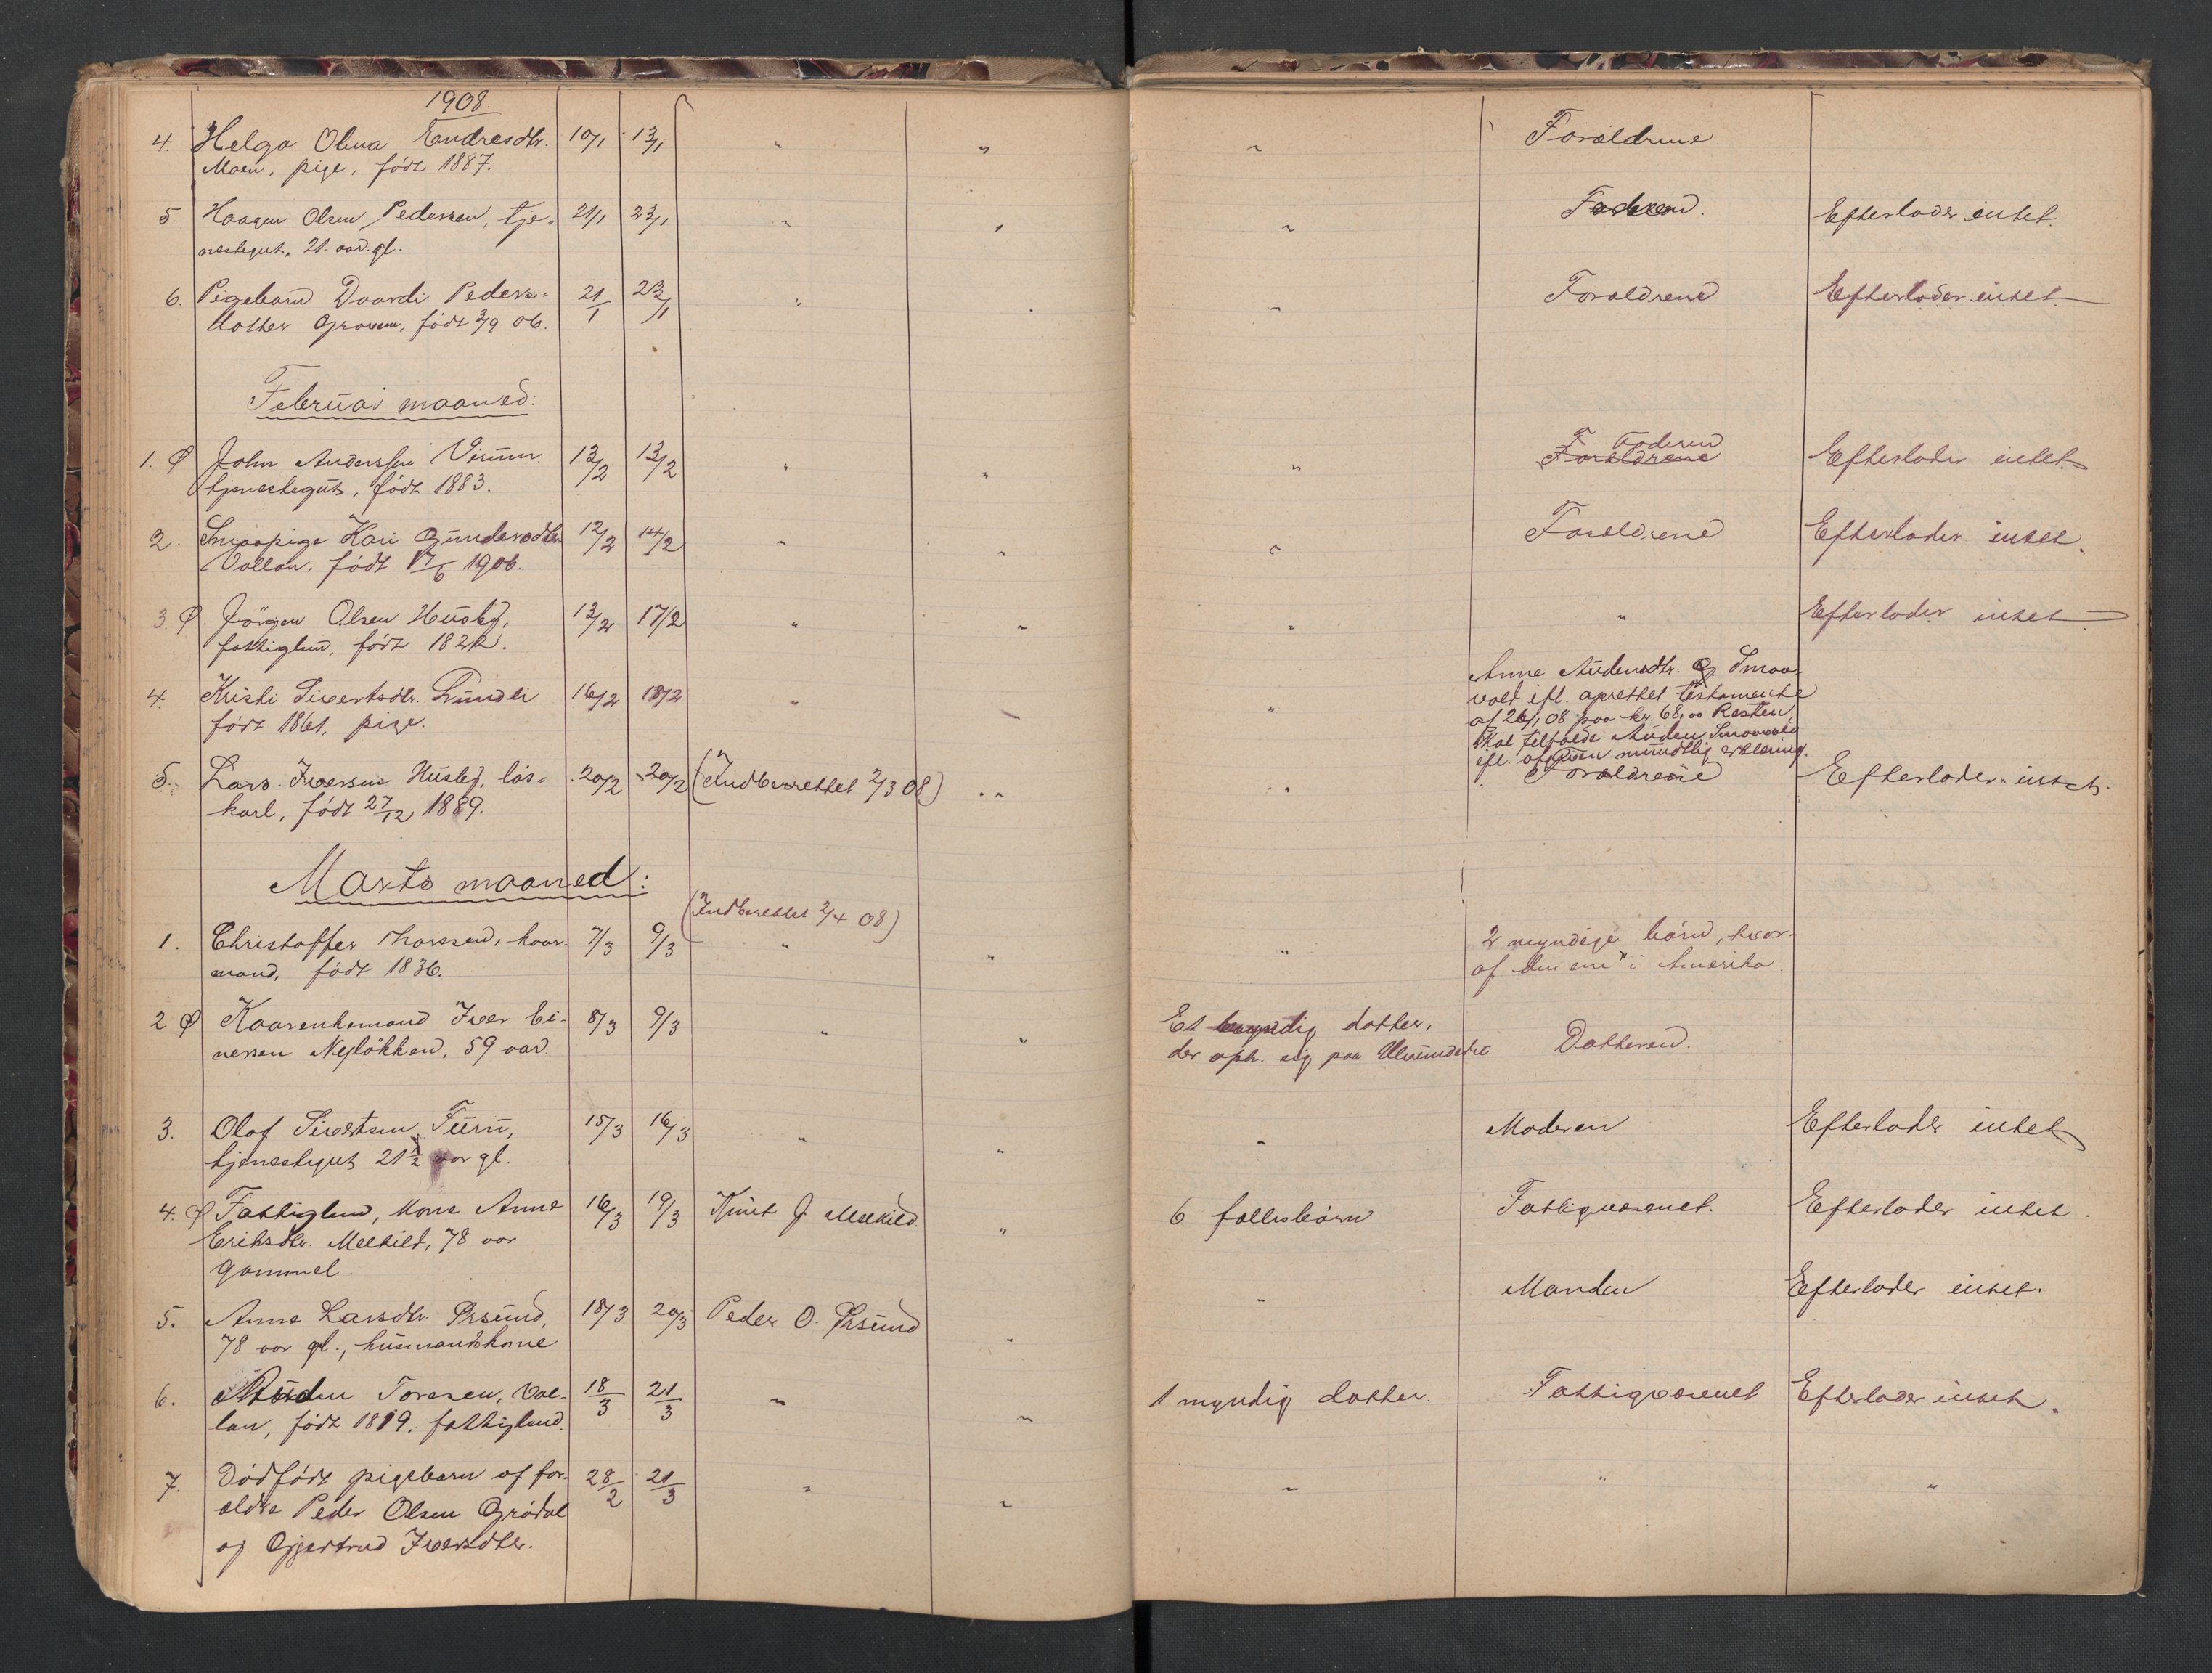 1908
4. Helga Olina Endresdtr. 10/1 13/1 " " " Forældrene
Moen, pige, født 1887.
5. Haagen Olsen Pedersen, tje- 21/1 23/1 " " " Faderen. Efterlader intet.
nestegut, 21. aar. gl.
6. Pigebarn Daardi Peders- 21/1 23/1 " " " Forældrene Efterlader intet.
datter Grøven, født 3/9 06.
Februar maaned:
1. Ø John Anderssen Virum 13/2 13/2 " " " Faderen Forældrene Efterlader intet
tjenestegut, født 1883.
2. Smaapige Kari Gundersdtr. 12/2 14/2 " " " Forældrene Efterlader intet.
Vollan, født 17/6 1906.
3. Ø Jörgen Olsen Husby, 13/2 17/2 " " " " Efterlader intet
fattiglem, født 1822.
4. Kristi Sivertsdtr. Lundli 16/2 18/2 " " "
født 1861, pige.
Anne Audensdtr. Smaa-
vold ifl. oprettet testamente
af 26/1 08 paa kr. 68,00 Resten
skal tilfalde Auden Smaavold
ifl. afdøen mundtlig erklæring.
5. Lars Iversen Husby, løs- 20/2 20/2 (Indberettet 2/3 08) " " Forældrene Efterlader intet.
karl, født 27/12 1889.
Marts maaned:
(Indberettet 2/4 08)
1. Christoffer Thoresen, kaar- 7/3 9/3 " " " 2 myndige børn, hvor-
mand, født 1836. af den ene i Amerika.
2 Ø Kaarenkemand Iver Ei- 8/3 9/3 " " Et myndig datter,
nersen Nyløkken, 59 aar. der oph. sig paa Datteren.
3. Olaf Sivertsen Furu, 15/3 16/3 " " " Moderen Efterlader intet
tjenestegut 21 1/2 aar gl.
4. Ø Fattiglem, kone Anne 16/3 19/3 Knut J Melkild. " 6 fællesbørn Fattigvæsenet. Efterlader intet.
Eriksdtr. Melkild, 78 aar
gammel.
5. Anne Larsdtr. Øysund, 18/3 20/3 Peder O. Øysund " " Manden Efterlader intet.
78 aar gl., husmandskone
6. Auden Toresen, Vol- 18/3 21/3 " " 1 myndig datter. Fattigvæsenet Efterlader intet.
lan, født 1819, fattiglem.
7. Dødfødt pigebarn af for- 28/2 21/3 " " " " "
ældre Peder Olsen Grødal
og Gjertrud Iversdtr.